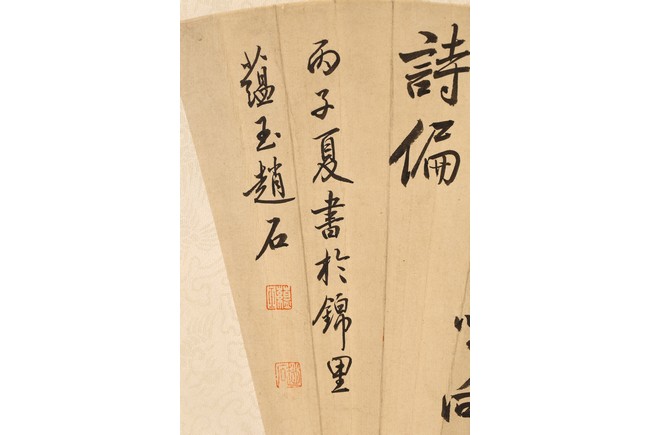 詩偏
丙子夏書於錦里
蘊玉趙石